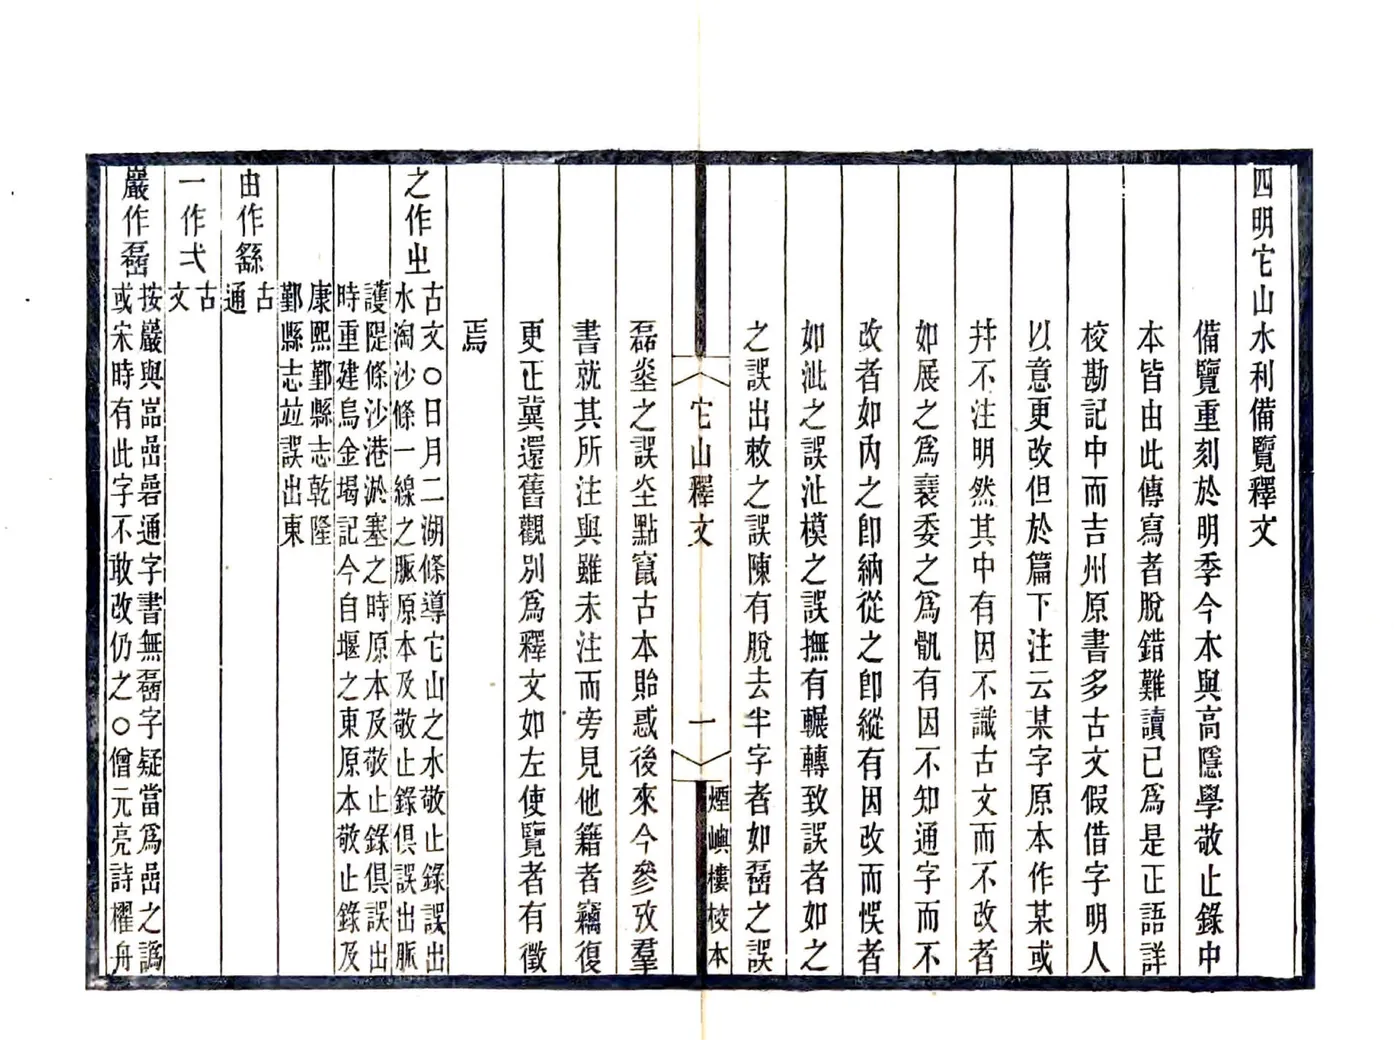 四明它山水利備覽釋文
備覽重刻於明季今本與高隱學敬止錄中
本皆由此傳寫者脫錯難讀已爲是正語詳
校勘記中而吉州原書多古文假借字明人
以意更改但於篇下注云某字原本作某或
幷不注明然其中有因不識古文而不改者
如展之爲襄委之爲骩有因不知通字而不
改者如內之卽納從之卽縱有因改而悞者
如泚之誤沚模之誤撫有輾轉致誤者如之
之誤出敕之誤陳有脫去半字者如嚞之誤
它山釋文
一
煙嶼樓校本
磊埀之誤坙點竄古本貽惑後來今參攷羣
書就其所注與雖未注而旁見他籍者竊復
更正冀還舊觀別爲釋文如左使覽者有徵
焉
之作㞢
古文○日月二湖條導它山之水敬止錄誤出
水淘沙條一線之脈原本及敬止錄俱誤出脈
護隄條沙港淤塞之時原本及敬止錄俱誤出
時重建烏金堨記今自堰之東原本敬止錄及
康熙鄞縣志乾隆
鄞縣志並誤出東
由作繇
古
通
一作弌
古
文
巖作磊
按巖與嵓嵒碞通字書無磊字疑當爲嵒之譌
或宋時有此字不敢改仍之○僧元亮詩櫂舟